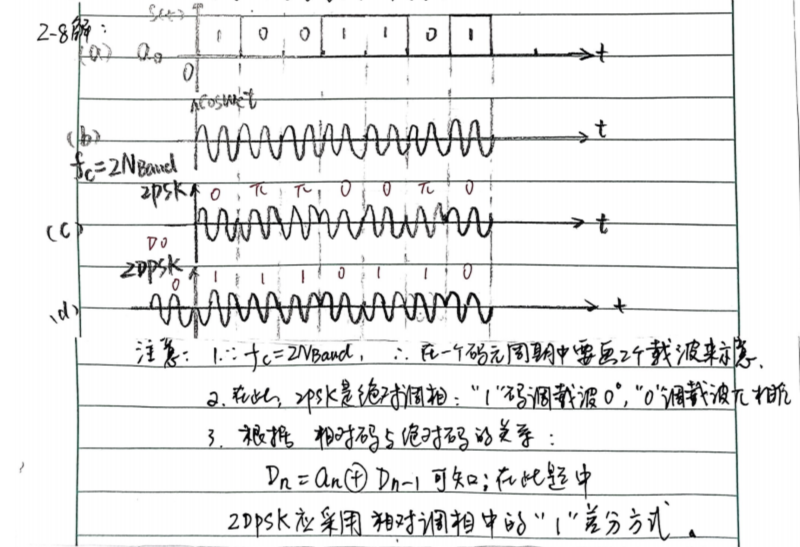 2-8解:
S(t)
1 0 0 1 1 0 1
(a) a₀ 0 t
cosωct
(b) t
fc=2NBaud
2PSK 0 π π 0 0 π 0
(c) t
D0
2DPSK 0 1 1 1 0 1 1 0
(d) t
注意: 1.∵ fc=2NBaud, ∴ 在一个码元周期中需画2个载波来示意.
2. 在此, 2PSK是绝对调相: "1"码调载波0°, "0"调载波π相位
3. 根据 相对码与绝对码的关系:
Dn = an⊕ Dn-1 可知; 在此题中
2DPSK应采用相对调相中的"1"差分方式.